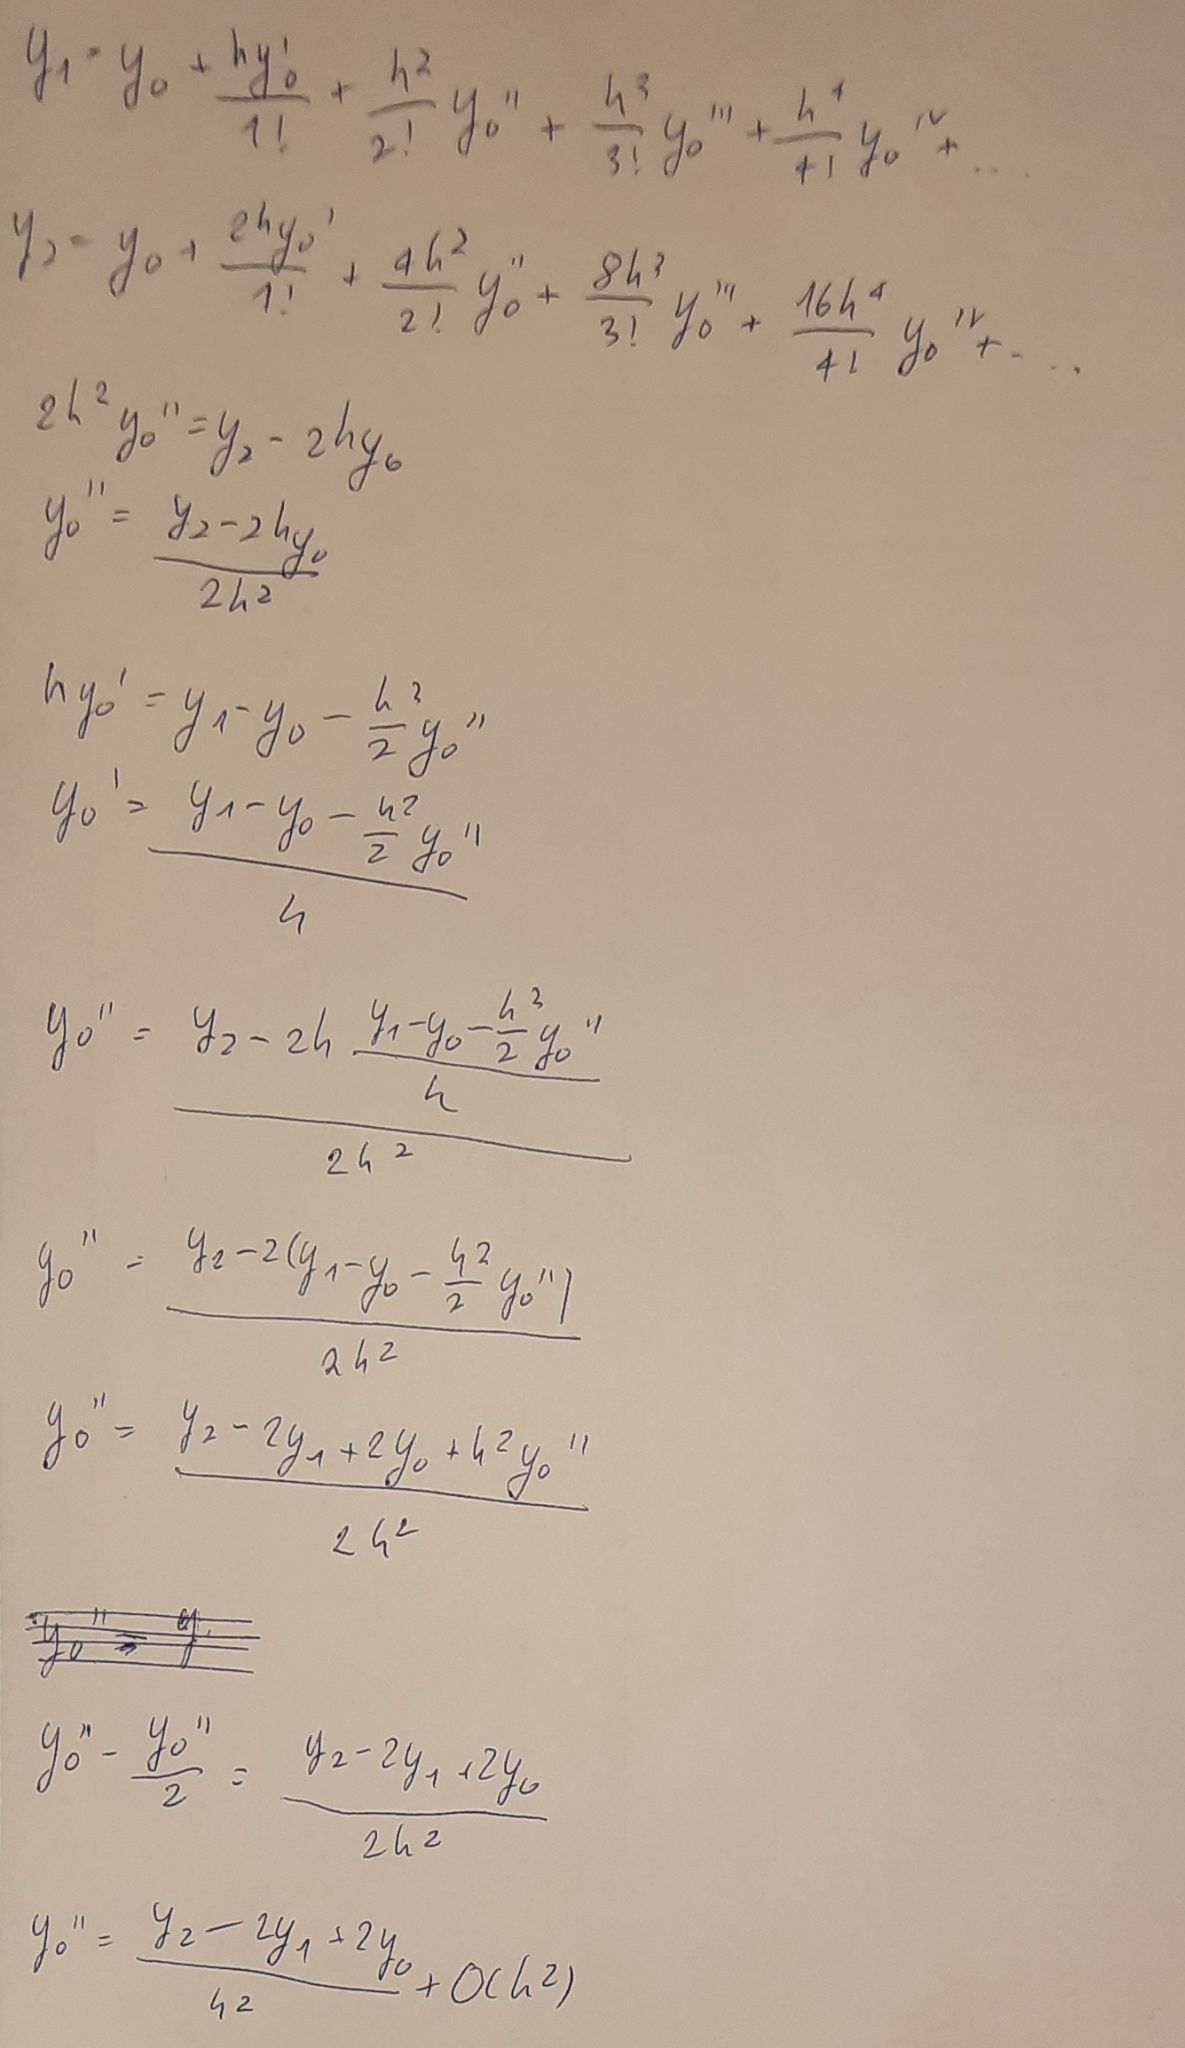 y₁ = y₀ + hy₀'/1! + h²/2! y₀'' + h³/3! y₀''' + h⁴/4! y₀ᴵⱽ + ...
y₂ = y₀ + 2hy₀'/1! + 4h²/2! y₀'' + 8h³/3! y₀''' + 16h⁴/4! y₀ᴵⱽ + ...
2h² y₀'' = y₂ - 2hy₀
y₀'' = (y₂ - 2hy₀)/2h²
hy₀' = y₁ - y₀ - h²/2 y₀''
y₀' = (y₁ - y₀ - h²/2 y₀'')/h
y₀'' = (y₂ - 2h (y₁ - y₀ - h²/2 y₀'')/h)/2h²
y₀'' = (y₂ - 2(y₁ - y₀ - h²/2 y₀''))/2h²
y₀'' = (y₂ - 2y₁ + 2y₀ + h² y₀'')/2h²
y₀'' = y
y₀'' - y₀''/2 = (y₂ - 2y₁ + 2y₀)/2h²
y₀'' = (y₂ - 2y₁ + 2y₀)/h² + O(h²)